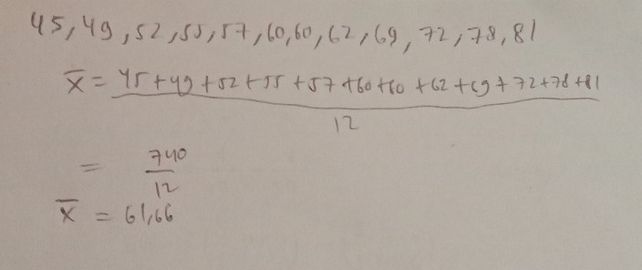 45, 49, 52, 55, 57, 60, 60, 62, 69, 72, 78, 81
x̄ = 45+49+52+55+57+60+60+62+69+72+78+81
12
= 740
12
x̄ = 61,66